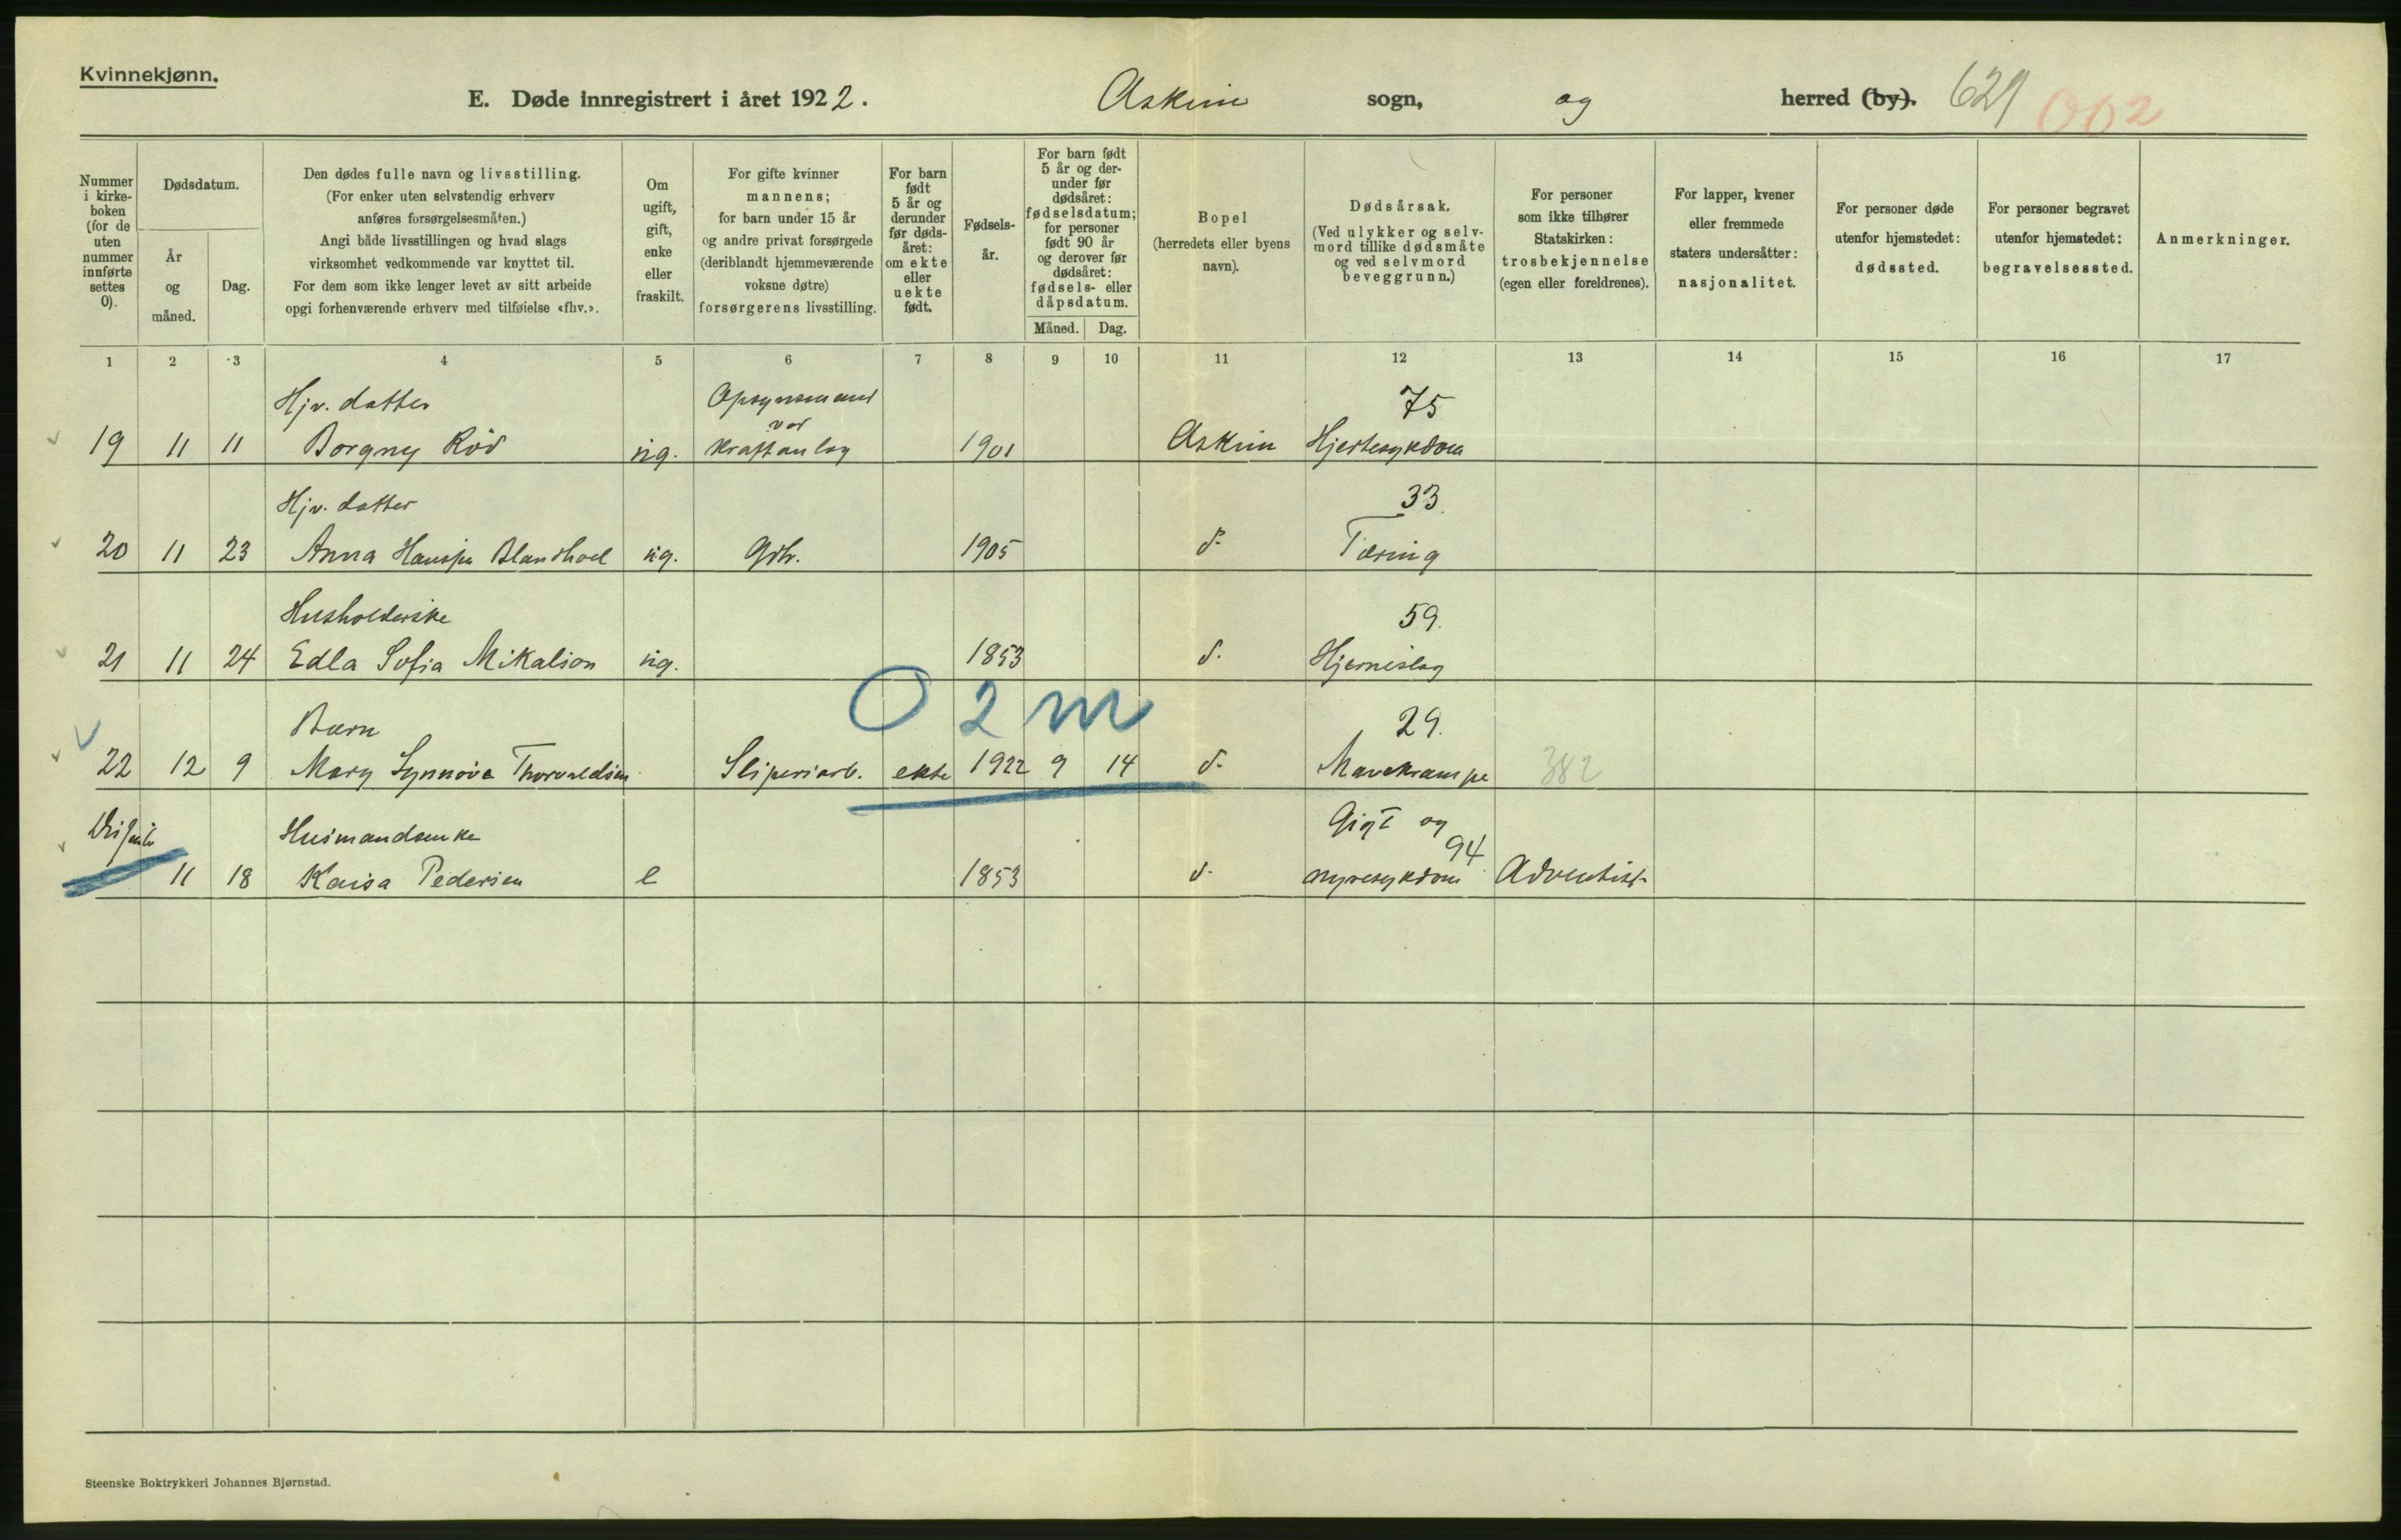 Kvinnekjønn.
E. Døde innregistrert i året 1922. Askim sogn, og herred (by). 629 002
Nummer i kirke- boken (for de uten nummer innførte settes 0).
Dødsdatum.
År og måned.
Dag.
Den dødes fulle navn og livsstilling.
(For enker uten selvstendig erhverv
anføres forsørgelsesmåten.)
Angi både livsstillingen og hvad slags
virksomhet vedkommende var knyttet til.
For dem som ikke lenger levet av sitt arbeide
opgi forhenværende erhverv med tilføielse «fhv.».
Om ugift, gift, enke eller fraskilt.
For gifte kvinner
mannens;
for barn under 15 år
og andre privat forsørgede
(deriblandt hjemmeværende
voksne døtre)
forsørgerens livsstilling.
For barn født 5 år og derunder før døds- året: om ekte eller uekte født.
Fødsels- år.
For barn født
5 år og der-
under før
dødsåret:
fødselsdatum;
for personer
født 90 år
og derover før
dødsåret:
fødsels- eller
dåpsdatum.
Måned. Dag.
Bopel
(herredets eller byens
navn).
Dødsårsak.
(Ved ulykker og selv-
mord tillike dødsmåte
og ved selvmord
beveggrunn.)
For personer
som ikke tilhører
Statskirken:
trosbekjennelse
(egen eller foreldrenes).
For lapper, kvener
eller fremmede
staters undersåtter:
nasjonalitet.
For personer døde
utenfor hjemstedet:
dødssted.
For personer begravet
utenfor hjemstedet:
begravelsessted.
Anmerkninger.
1 2 3 4 5 6 7 8 9 10 11 12 13 14 15 16 17
Hjv. datter Opsynsmand 75
ved
19 11 11 Borgny Röd ug. Kraftanlag 1901 Askim Hjertesykdom
Hjv. datter 33.
20 11 23 Anna Blandhoel ug. Gbr. 1905 d. Tæring
Husholderske 59.
21 11 24 Edla Sofia Mikalsen ug. 1853 d. Hjerneslag
0 2 m
Barn 29.
22 12 9 Mary Synnöve Thorvaldsen Sliperiarb. ekte 1922 9 14 d. Mavekrampe 382
Husmandsenke Gigt og
94
11 18 Kaisa Pedersen e 1853 d. nyresykdom Adventist
Steenske Boktrykkeri Johannes Bjørnstad.